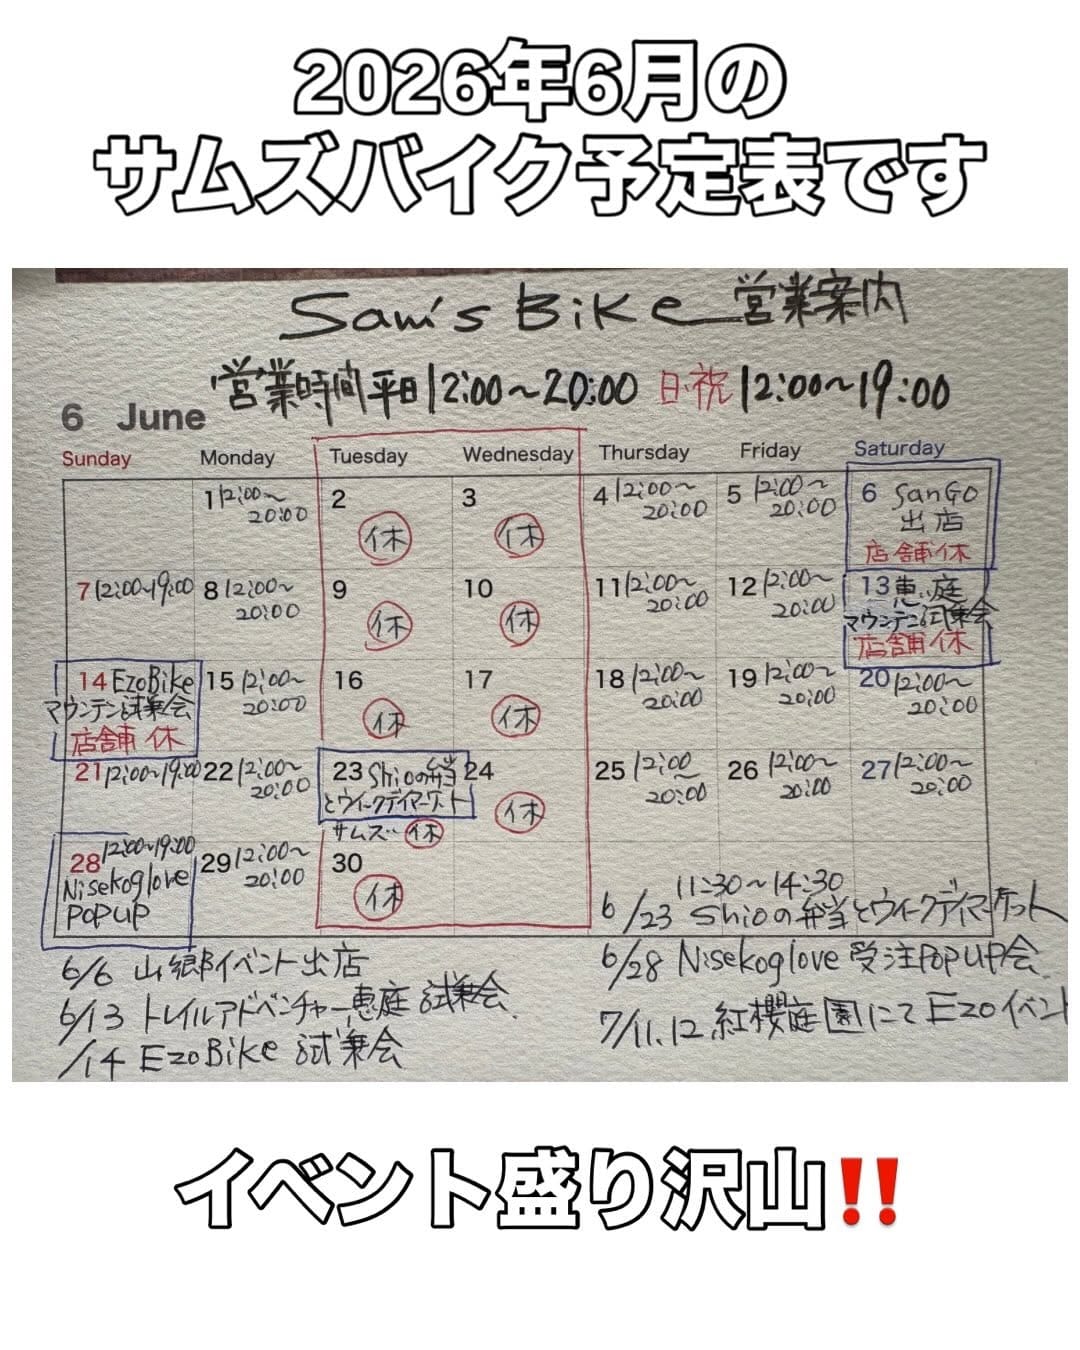 2026年6月の
サムズバイク予定表です
Sam's BiKe 営業案内
営業時間平日12:00〜20:00 日・祝12:00〜19:00
6 June
Sunday Monday Tuesday Wednesday Thursday Friday Saturday
1 12:00〜20:00
2 休
3 休
4 12:00〜20:00
5 12:00〜20:00
6 SanGO出店 店舗休
7 12:00〜19:00
8 12:00〜20:00
9 休
10 休
11 12:00〜20:00
12 12:00〜20:00
13 恵庭マウンテン試乗会 店舗休
14 EzoBike マウンテン試乗会 店舗休
15 12:00〜20:00
16 休
17 休
18 12:00〜20:00
19 12:00〜20:00
20 12:00〜20:00
21 12:00〜19:00
22 12:00〜20:00
23 Shioの弁当とウィークデイマーケット サムズ 休
24 休
25 12:00〜20:00
26 12:00〜20:00
27 12:00〜20:00
28 12:00〜19:00 Nisekoglove POPUP
29 12:00〜20:00
30 休
6/6 山郷イベント出店
6/13 トレイルアドベンチャー恵庭 試乗会
/14 EzoBike 試乗会
11:30〜14:30
6/23 Shioの弁当とウィークデイマーケット
6/28 Nisekoglove 受注POPUP会
7/11.12 紅櫻庭園にてEzoイベント
イベント盛り沢山‼️